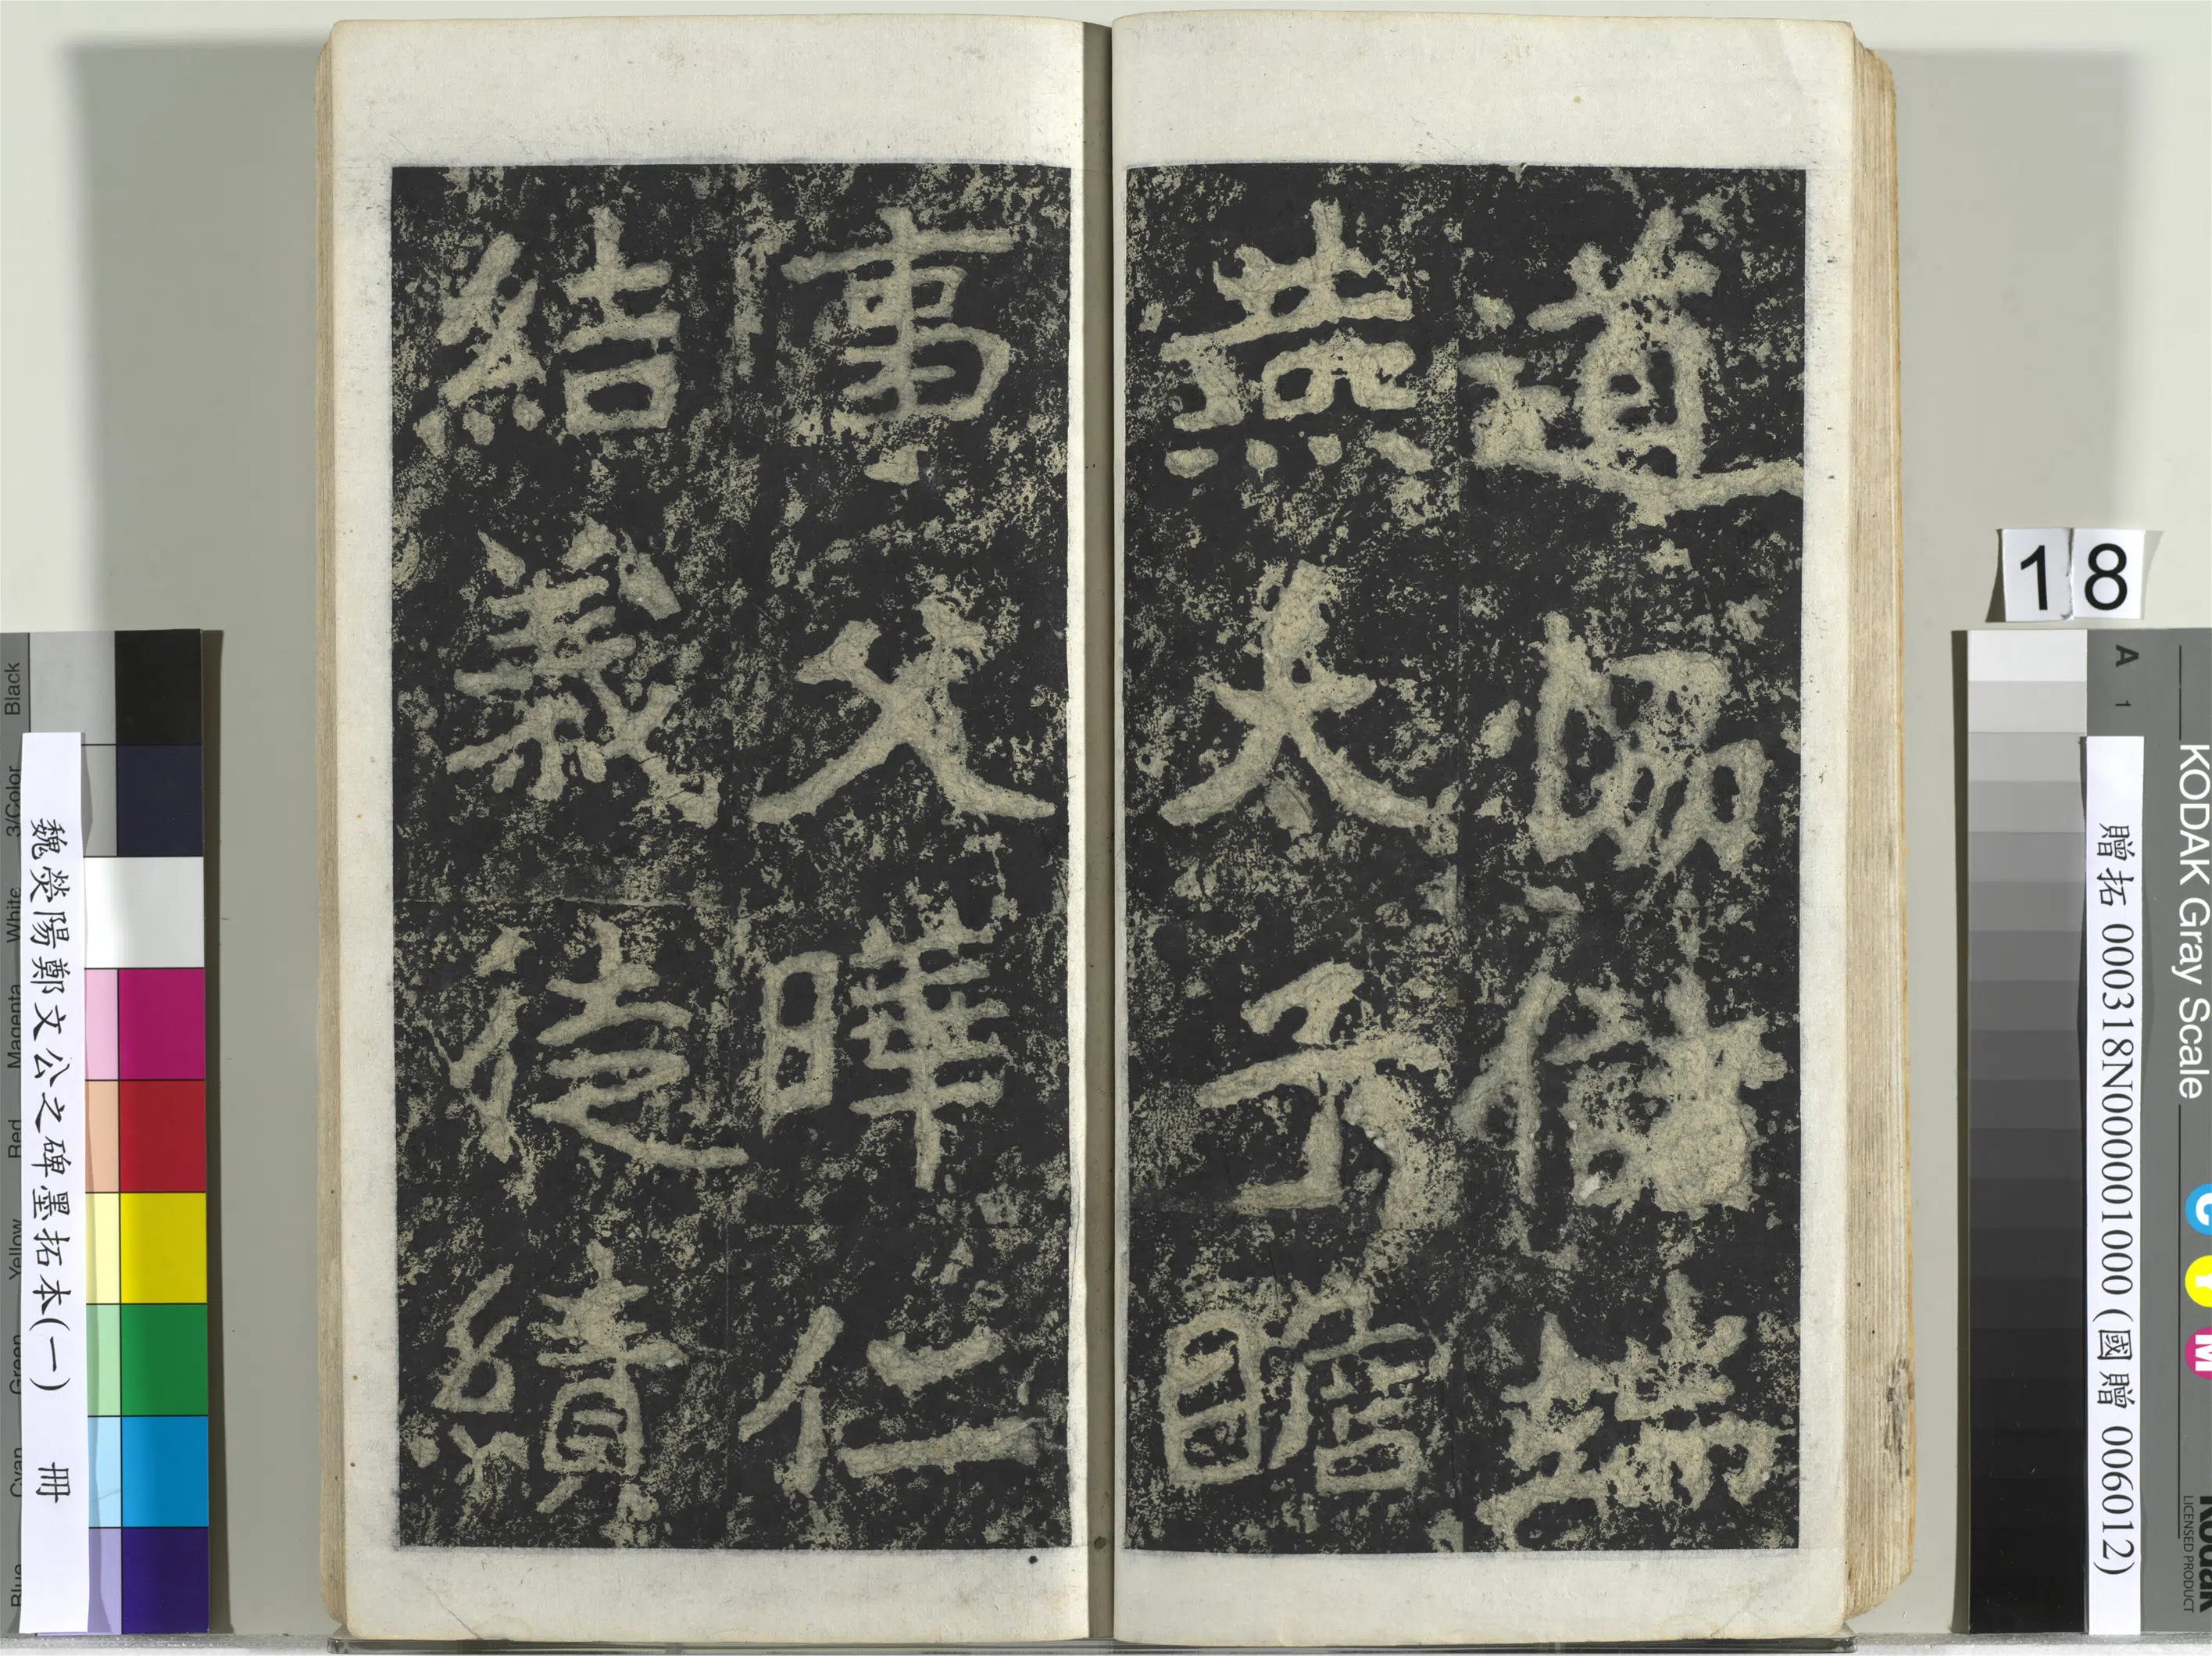 道協儲端
燕太子瞻
事父曄仁
結義徒績
魏滎陽鄭文公之碑墨拓本(一) 冊
18
贈拓 000318N000001000 (國贈 006012)
KODAK Gray Scale
A 1
C Y M
Kodak
LICENSED PRODUCT
Blue Cyan Green Yellow Red Magenta White 3/Color Black